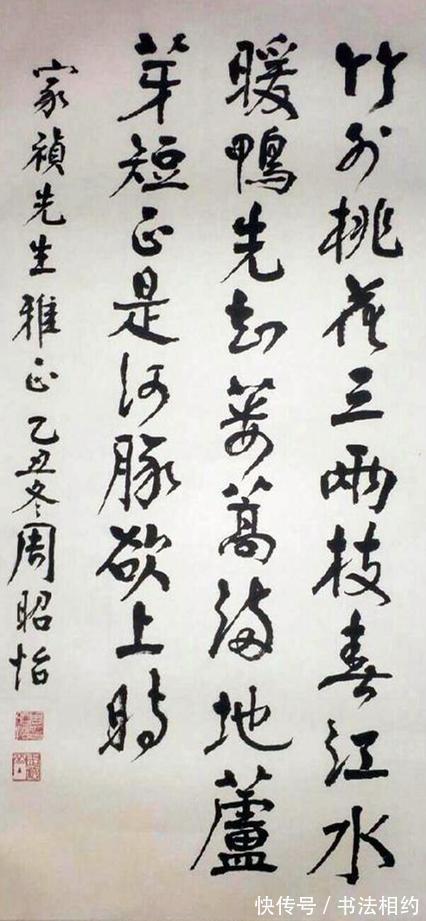 竹外桃花三兩枝春江水
暖鴨先知蔞蒿滿地蘆
芽短正是河豚欲上時
家禎先生雅正乙丑冬周昭怡
快传号/书法相约